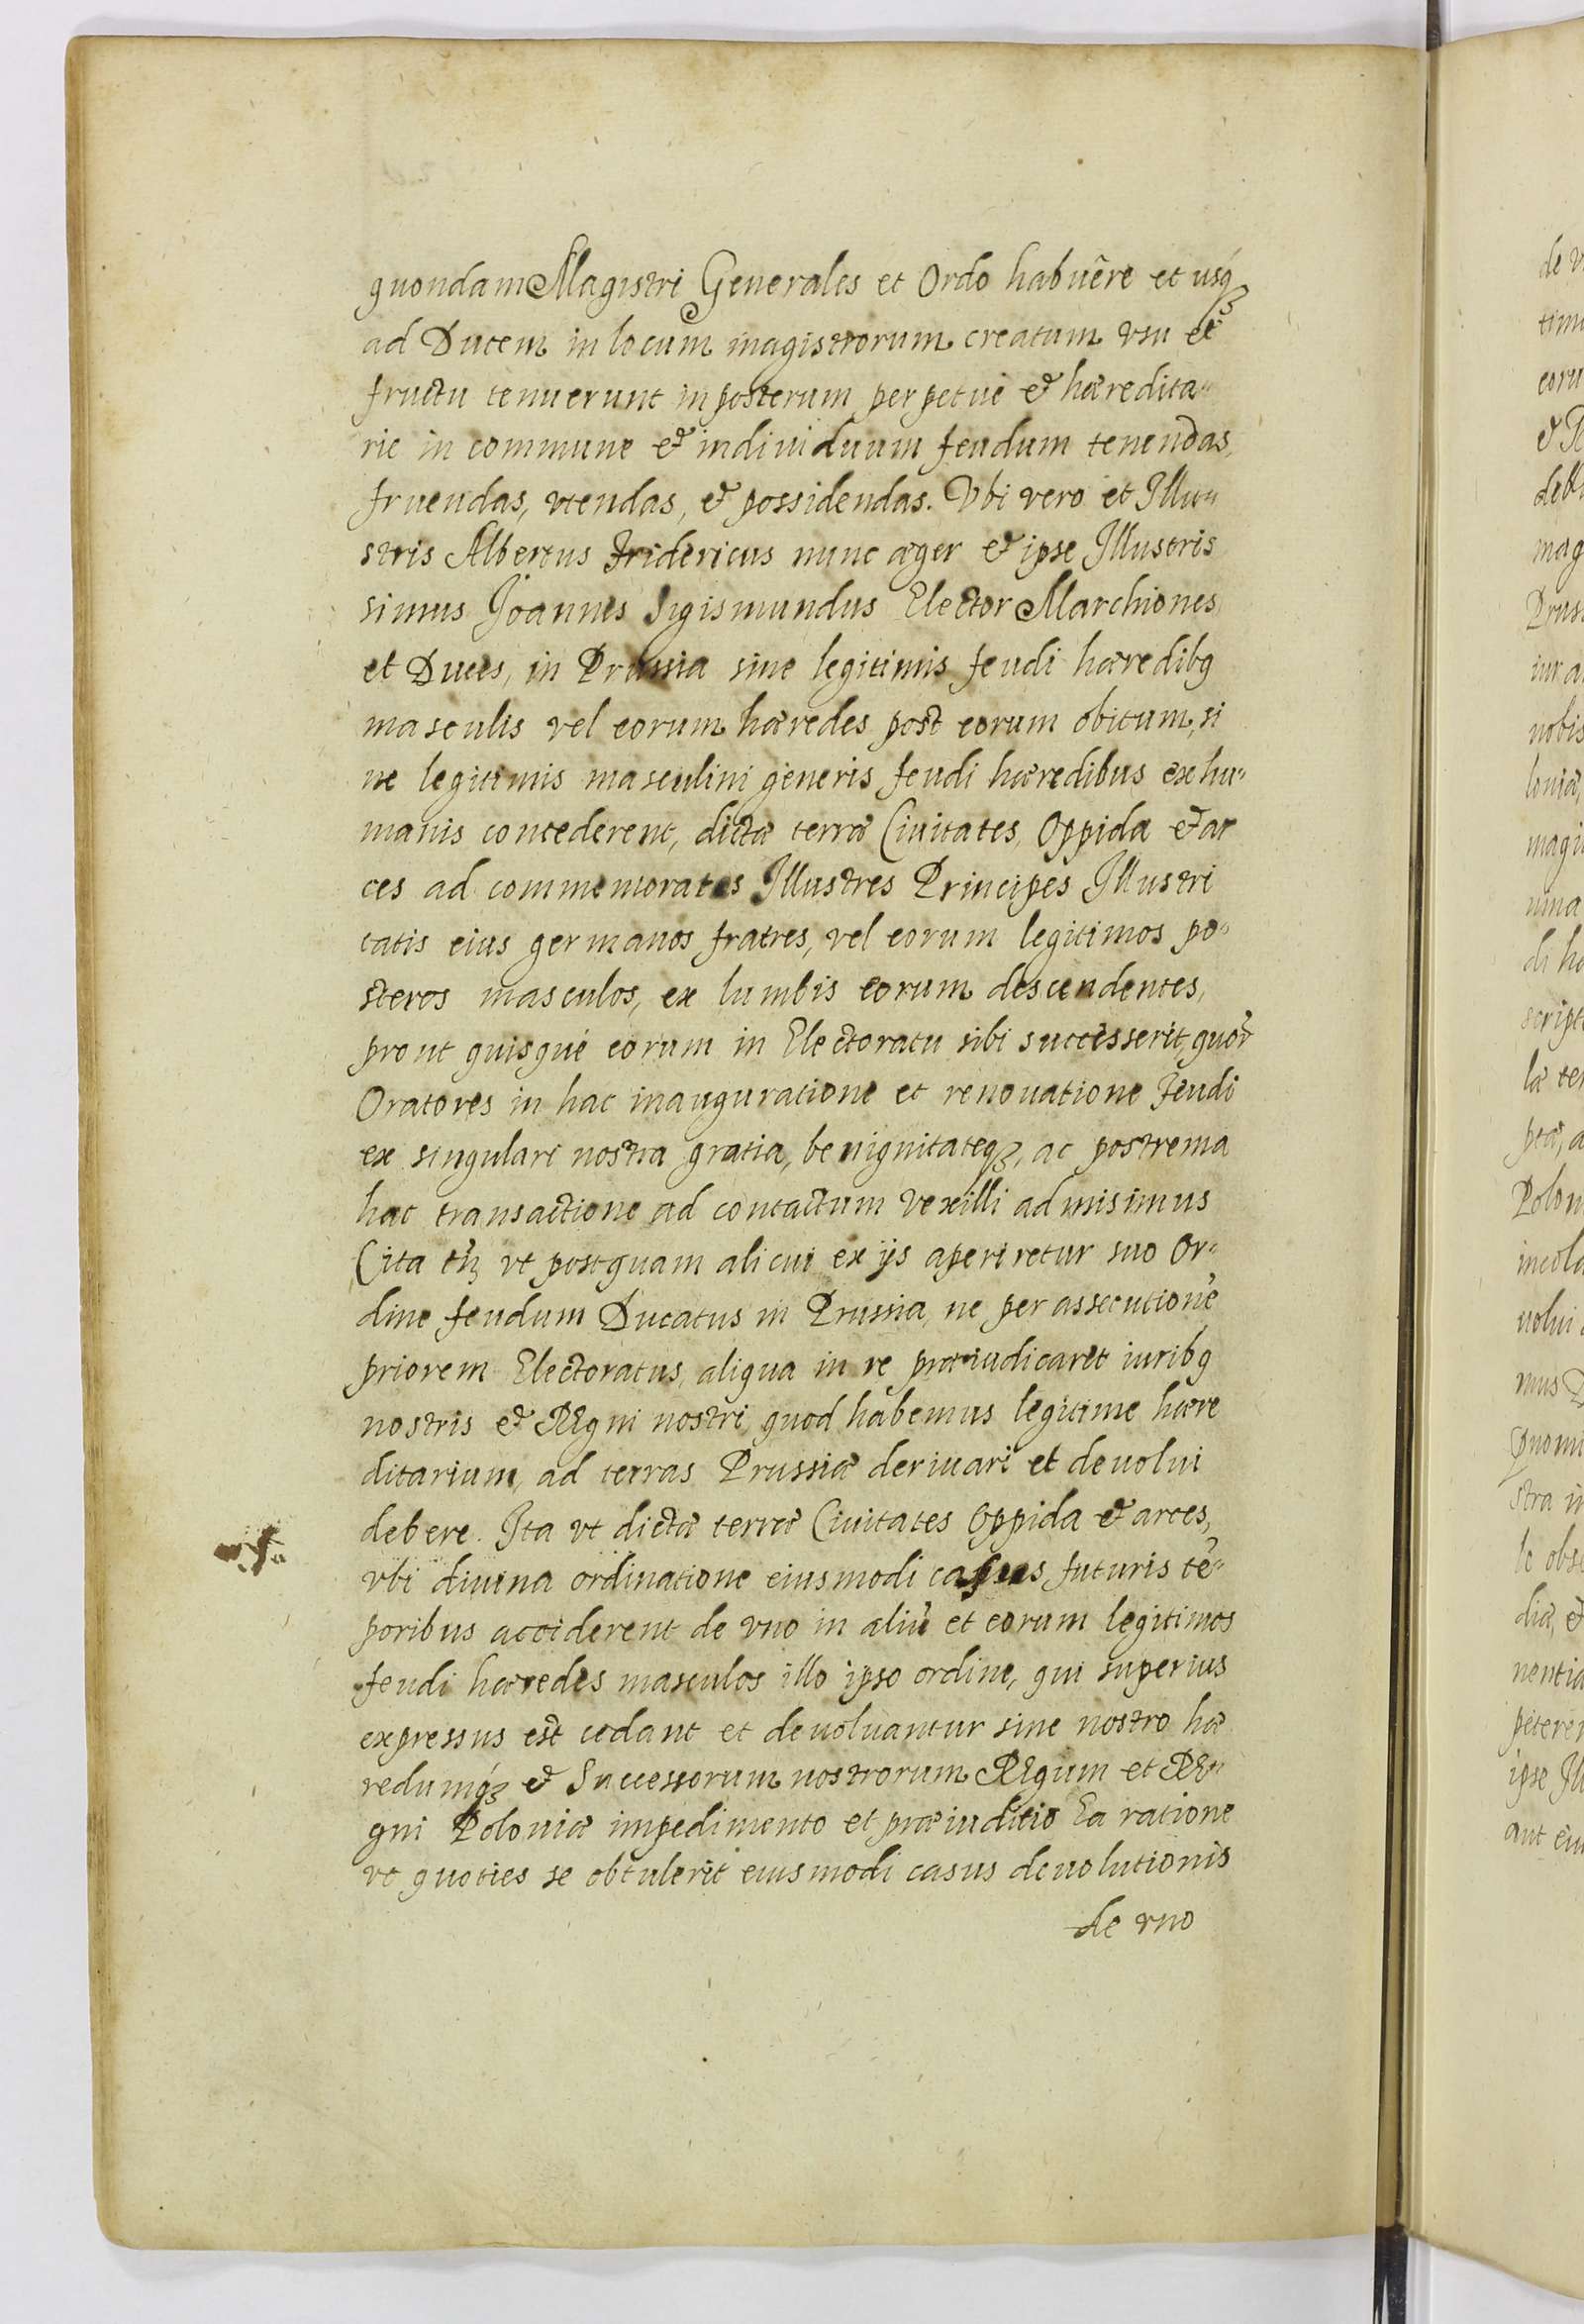 quondam Magistri Generales et Ordo habuêre et usq́ꝫ
ad Ducem in locum magistrorum creatum vsu et
fructu tenuerunt in posterum perpetue & hæredita-
rie in commune & indiuiduum feudum tenendas,
fruendas, vtendas, & possidendas. Vbi vero et Illu-
stris Albertus Fridericus nunc æger & ipse Illustris
simus Joannes Sigismundus Elector Marchiones
et Duces, in Prussia sine legitimis feudi hæredibꝰ
masculis vel eorum hæredes post eorum obitum, si
ne legitimis masculini generis feudi hæredibus ex hu-
manis concederent, dictæ terræ Ciuitates, Oppida & ar
ces ad commemoratos Illustres Principes Illustri
tatis eius germanos fratres, vel eorum legitimos po-
steros masculos, ex lumbis eorum descendentes,
prout quisque eorum in Electoratu sibi successerit, quor̃
Oratores in hac inauguratione et renouatione feudi
ex singulari nostra gratia, benignitateqꝫ, ac postrema
hac transactione ad contactum vexilli admisimus
(ita tñ vt postquam alicui ex ijs aperiretur suo or-
dine feudum Ducatus in Prussia, ne per assecutionẽ
priorem Electoratus, aliqua in re præiudicaret iuribꝰ
nostris & Regni nostri, quod habemus legitime hære
ditarium, ad terras Prussiæ deriuari et deuolui
debere. Ita vt dictæ terræ Ciuitates Oppida & arces,
vbi diuina ordinatione eiusmodi casus futuris tẽ-
poribus acciderent de vno in aliũ et eorum legitimos
feudi hæredes masculos illo ipso ordine, qui superius
expressus est cedant et deuoluantur sine nostro hæ
redumq́ꝫ & Successorum nostrorum Regum et Re-
gni Poloniæ impedimento et præiuditio Ea ratione
vt quoties se obtulerit eiusmodi casus deuolutionis
de vno